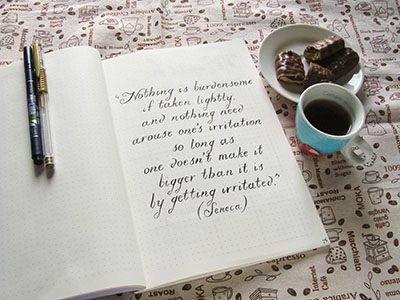 "Nothing is burdensome
if taken lightly,
and nothing need
arouse one's irritation
so long as
one doesn't make it
bigger than it is
by getting irritated."
(Seneca)